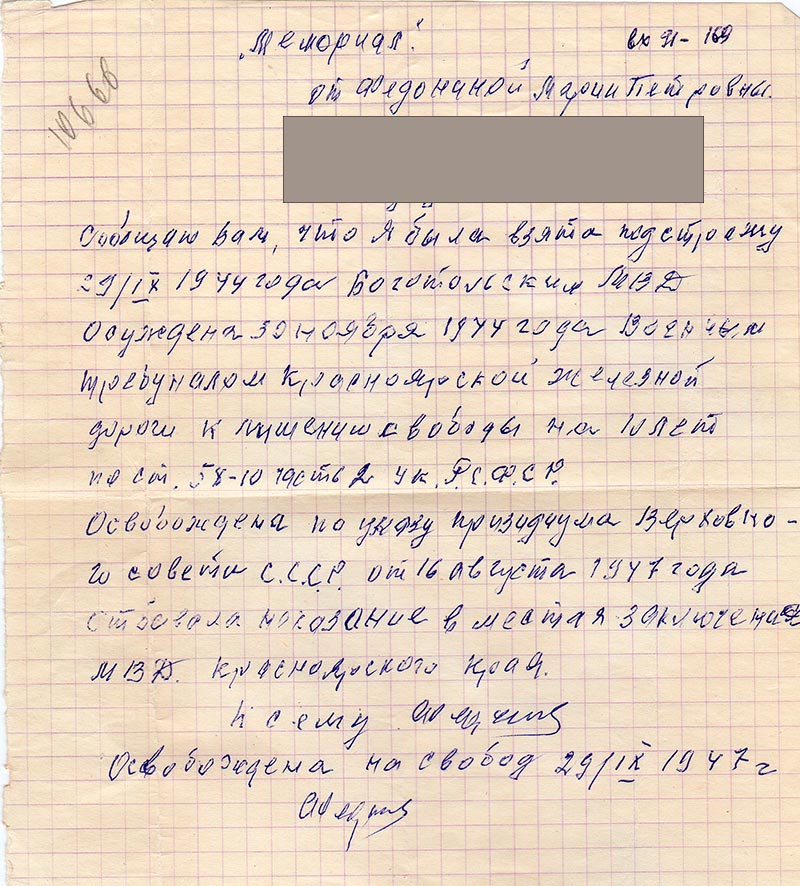 „Мемориал".
вх 91-169
10668
от Федониной Марии Петровны.
Сообщаю вам, что я была взята подстражу
29/IX 1944 года Боготольским МВД
Осуждена 30 ноября 1944 года Военным
трибуналом Красноярской железной
дороги к лишению свободы на 10 лет
по ст. 58-10 часть 2 ук. Р.С.Ф.С.Р.
Освобождена по указу призидиума Верховно-
го совета С.С.С.Р. от 16 августа 1947 года
Отбовала наказание в местах заключения
МВД. Красноярского края.
К сему
Освобождена на свобод 29/IX 1947 г